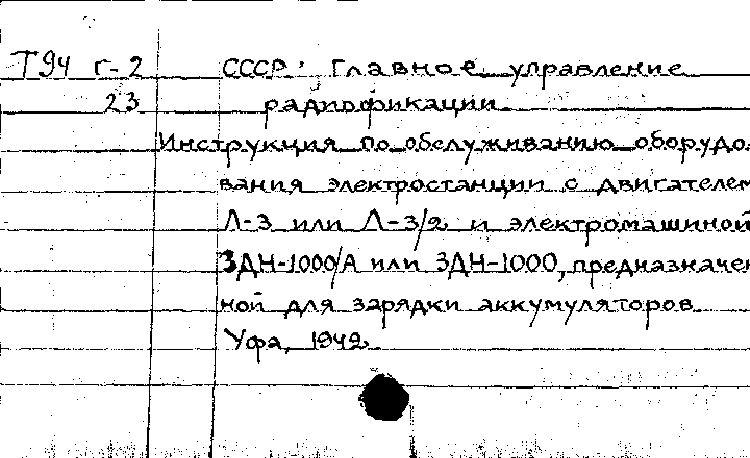 Т94 г-2 СССР. Главное управление
23 радиофикации
Инструкция по обслуживанию оборудо-
вания электростанции с двигателем
Л-3 или Л-3/2 и электромашиной
ЗДН-1000/А или ЗДН-1000, предназначен
ной для зарядки аккумуляторов
Уфа, 1942